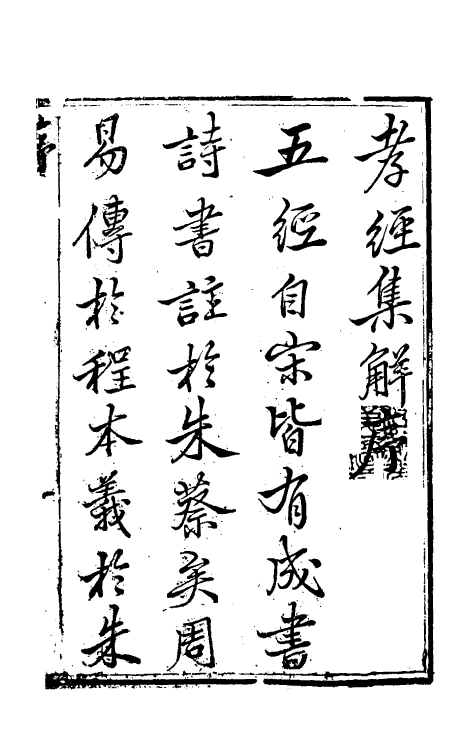 孝經集解序
五經自宋皆有成書
詩書註於朱蔡矣周
易傳於程本義於朱